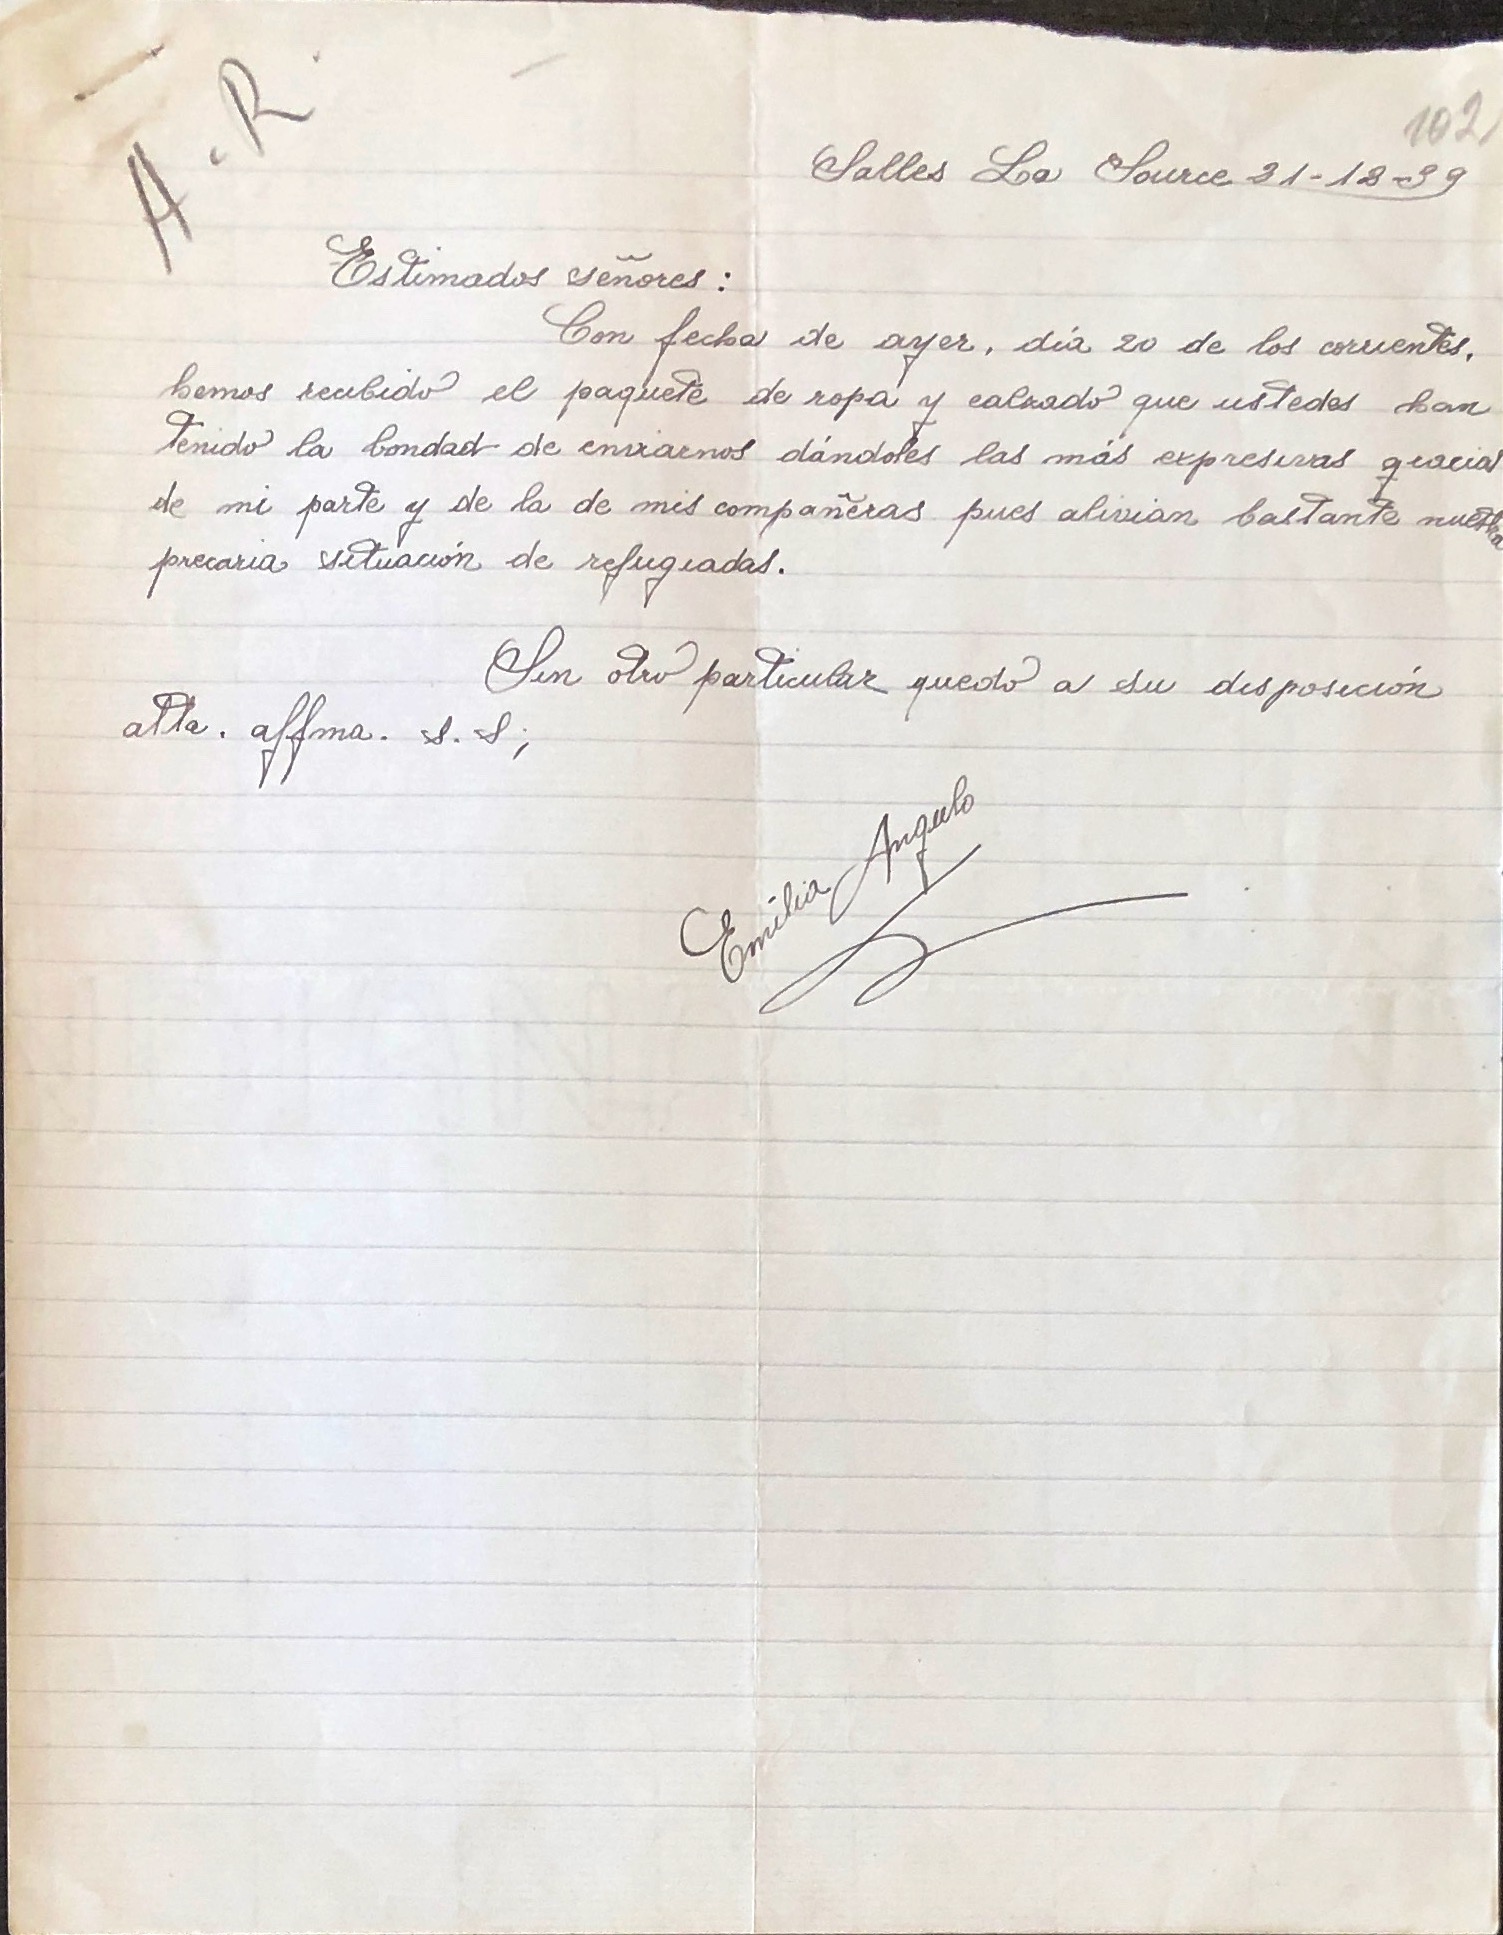 A. R.
102
Salles La Source 21-12-39
Estimados señores:
Con fecha de ayer, día 20 de los corrientes,
hemos recibido el paquete de ropa y calzado que ustedes han
tenido la bondad de enviarnos dándoles las más expresivas gracias
de mi parte y de la de mis compañeras pues alivian bastante nuestra
precaria situación de refugiadas.
Sin otro particular quedo a su disposición
atta. affma. s. s;
Emilia Angulo